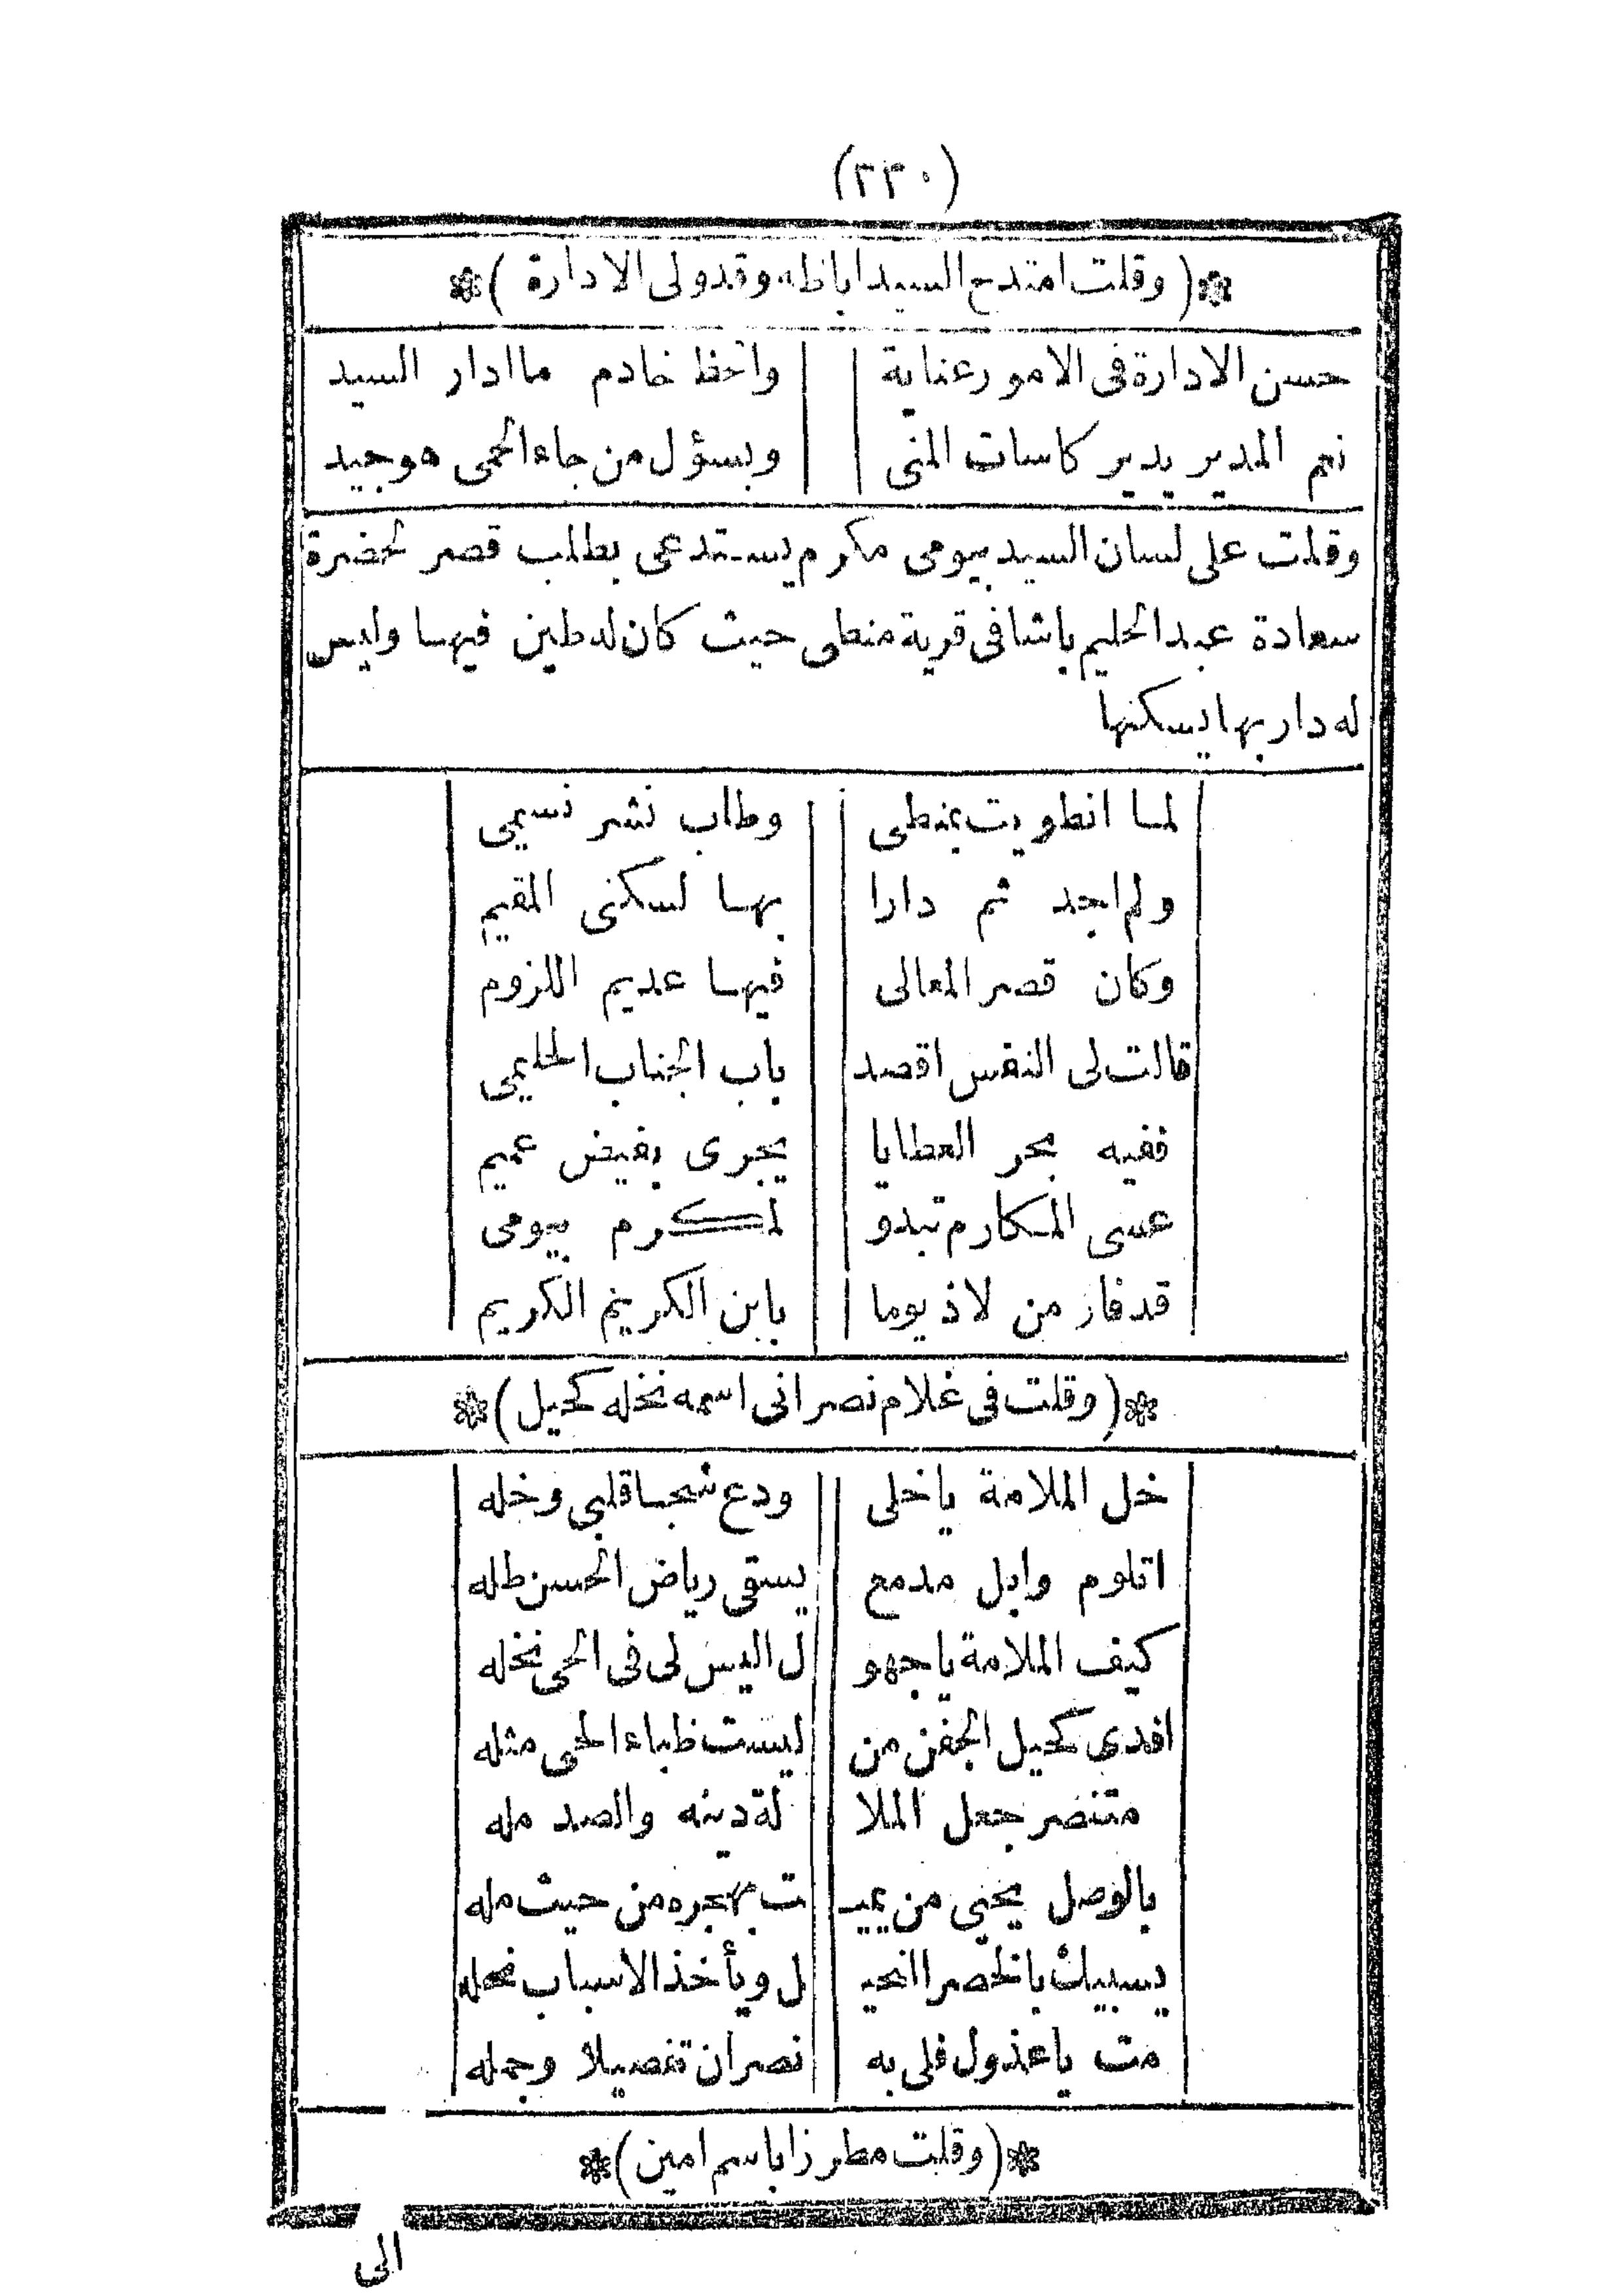 (٢٣٠)
❁( وقلت امتدح السيد اباظه وقد ولى الادارة )❁
حسن الادارة فى الامور عناية والحظ خادم ما ادار السيد
نعم المدير يدير كاسات المنى وبسؤل من جاء الحمى هو جيد
وقلت على لسان السيد بيومى مكرم يستدعى بطلب قصر لحضرة
سعادة عبد الحليم باشا فى قرية منطى حيث كان له طين فيها وليس
له دار بها يسكنها
لما انطويت بمنطى وطاب نشر نسيمى
ولم اجد ثم دارا بها لسكنى المقيم
وكان قصر المعالى فيها عديم اللزوم
قالت لى النفس اقصد باب الجناب الحليمى
ففيه بحر العطايا يجرى بفيض عميم
عسى المكارم تبدو لمكرم بيومى
قد فاز من لاذ يوما بابن الكريم الكريم
❁( وقلت فى غلام نصرانى اسمه نخله كحيل )❁
خل الملامة يا خلى ودع شجا قلبى وخله
اتلوم وابل مدمع يسقى رياض الحسن طله
كيف الملامة يا جهو ل اليس لى فى الحى نخله
افدى كحيل الجفن من ليست ظباء الحى مثله
متنصر جعل الملا لة دينه والصد مله
بالوصل يحيى من يميـ ت بهجره من حيث مله
يسبيك بالخصر النحيـ ل ويأخذ الالباب نحله
مت يا عذول فلى به نصران تفصيلا وجمله
❁( وقلت مطرزا باسم امين )❁
الى